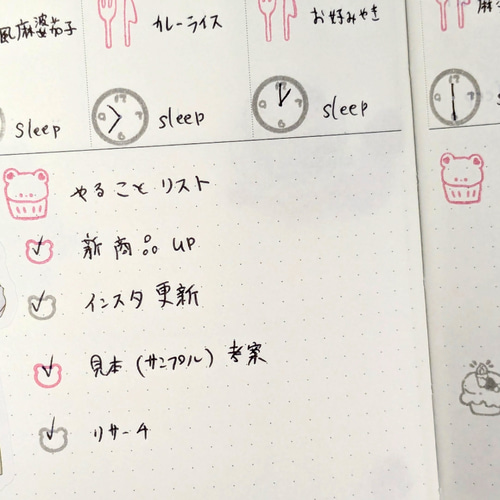 風麻婆茄子
カレーライス
お好みやき
麻
sleep
sleep
sleep
やることリスト
新商品 up
インスタ更新
見本(サンプル)考案
リサーチ